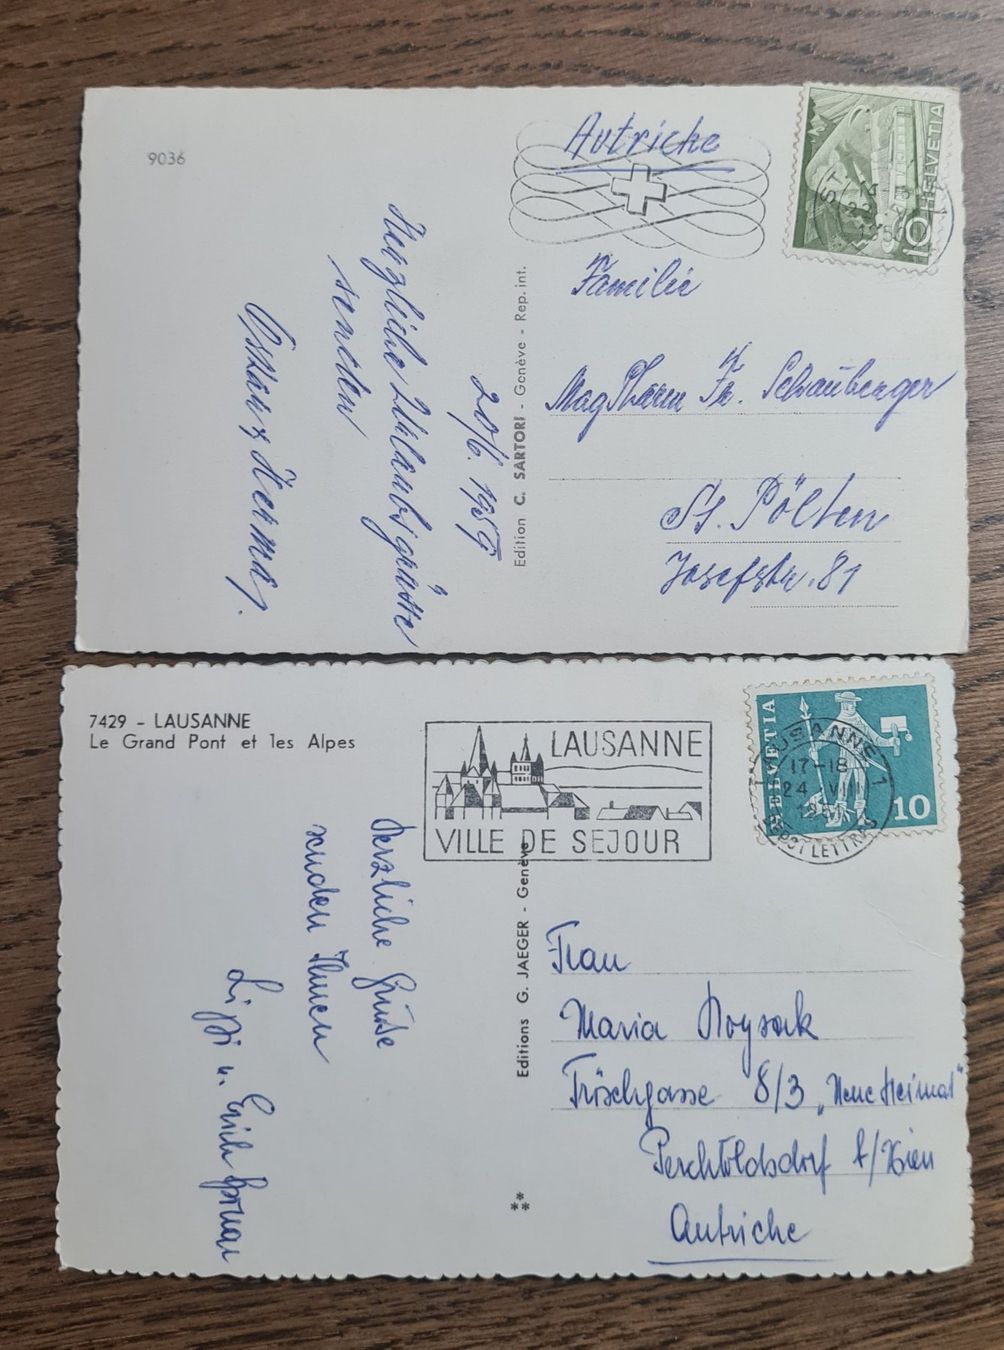 9036
Autriche
HELVETIA
10
Familie
Mag Pharm Fr. Schauberger
St. Pölten
Josefstr. 81
Edition C. SARTORI - Genève - Rep. int.
20/6. 1959
Herzliche Urlaubsgrüße
senden
7429 - LAUSANNE
Le Grand Pont et les Alpes
LAUSANNE
VILLE DE SEJOUR
HELVETIA
10
LAUSANNE 1
17-18
24 VIII
Frau
Maria
Fröschgasse 8/3 „Neue Heimat"
Perchtoldsdorf b/Wien
Autriche
Editions G. JAEGER - Genève
Herzliche Grüße
senden Ihnen
u. Erich